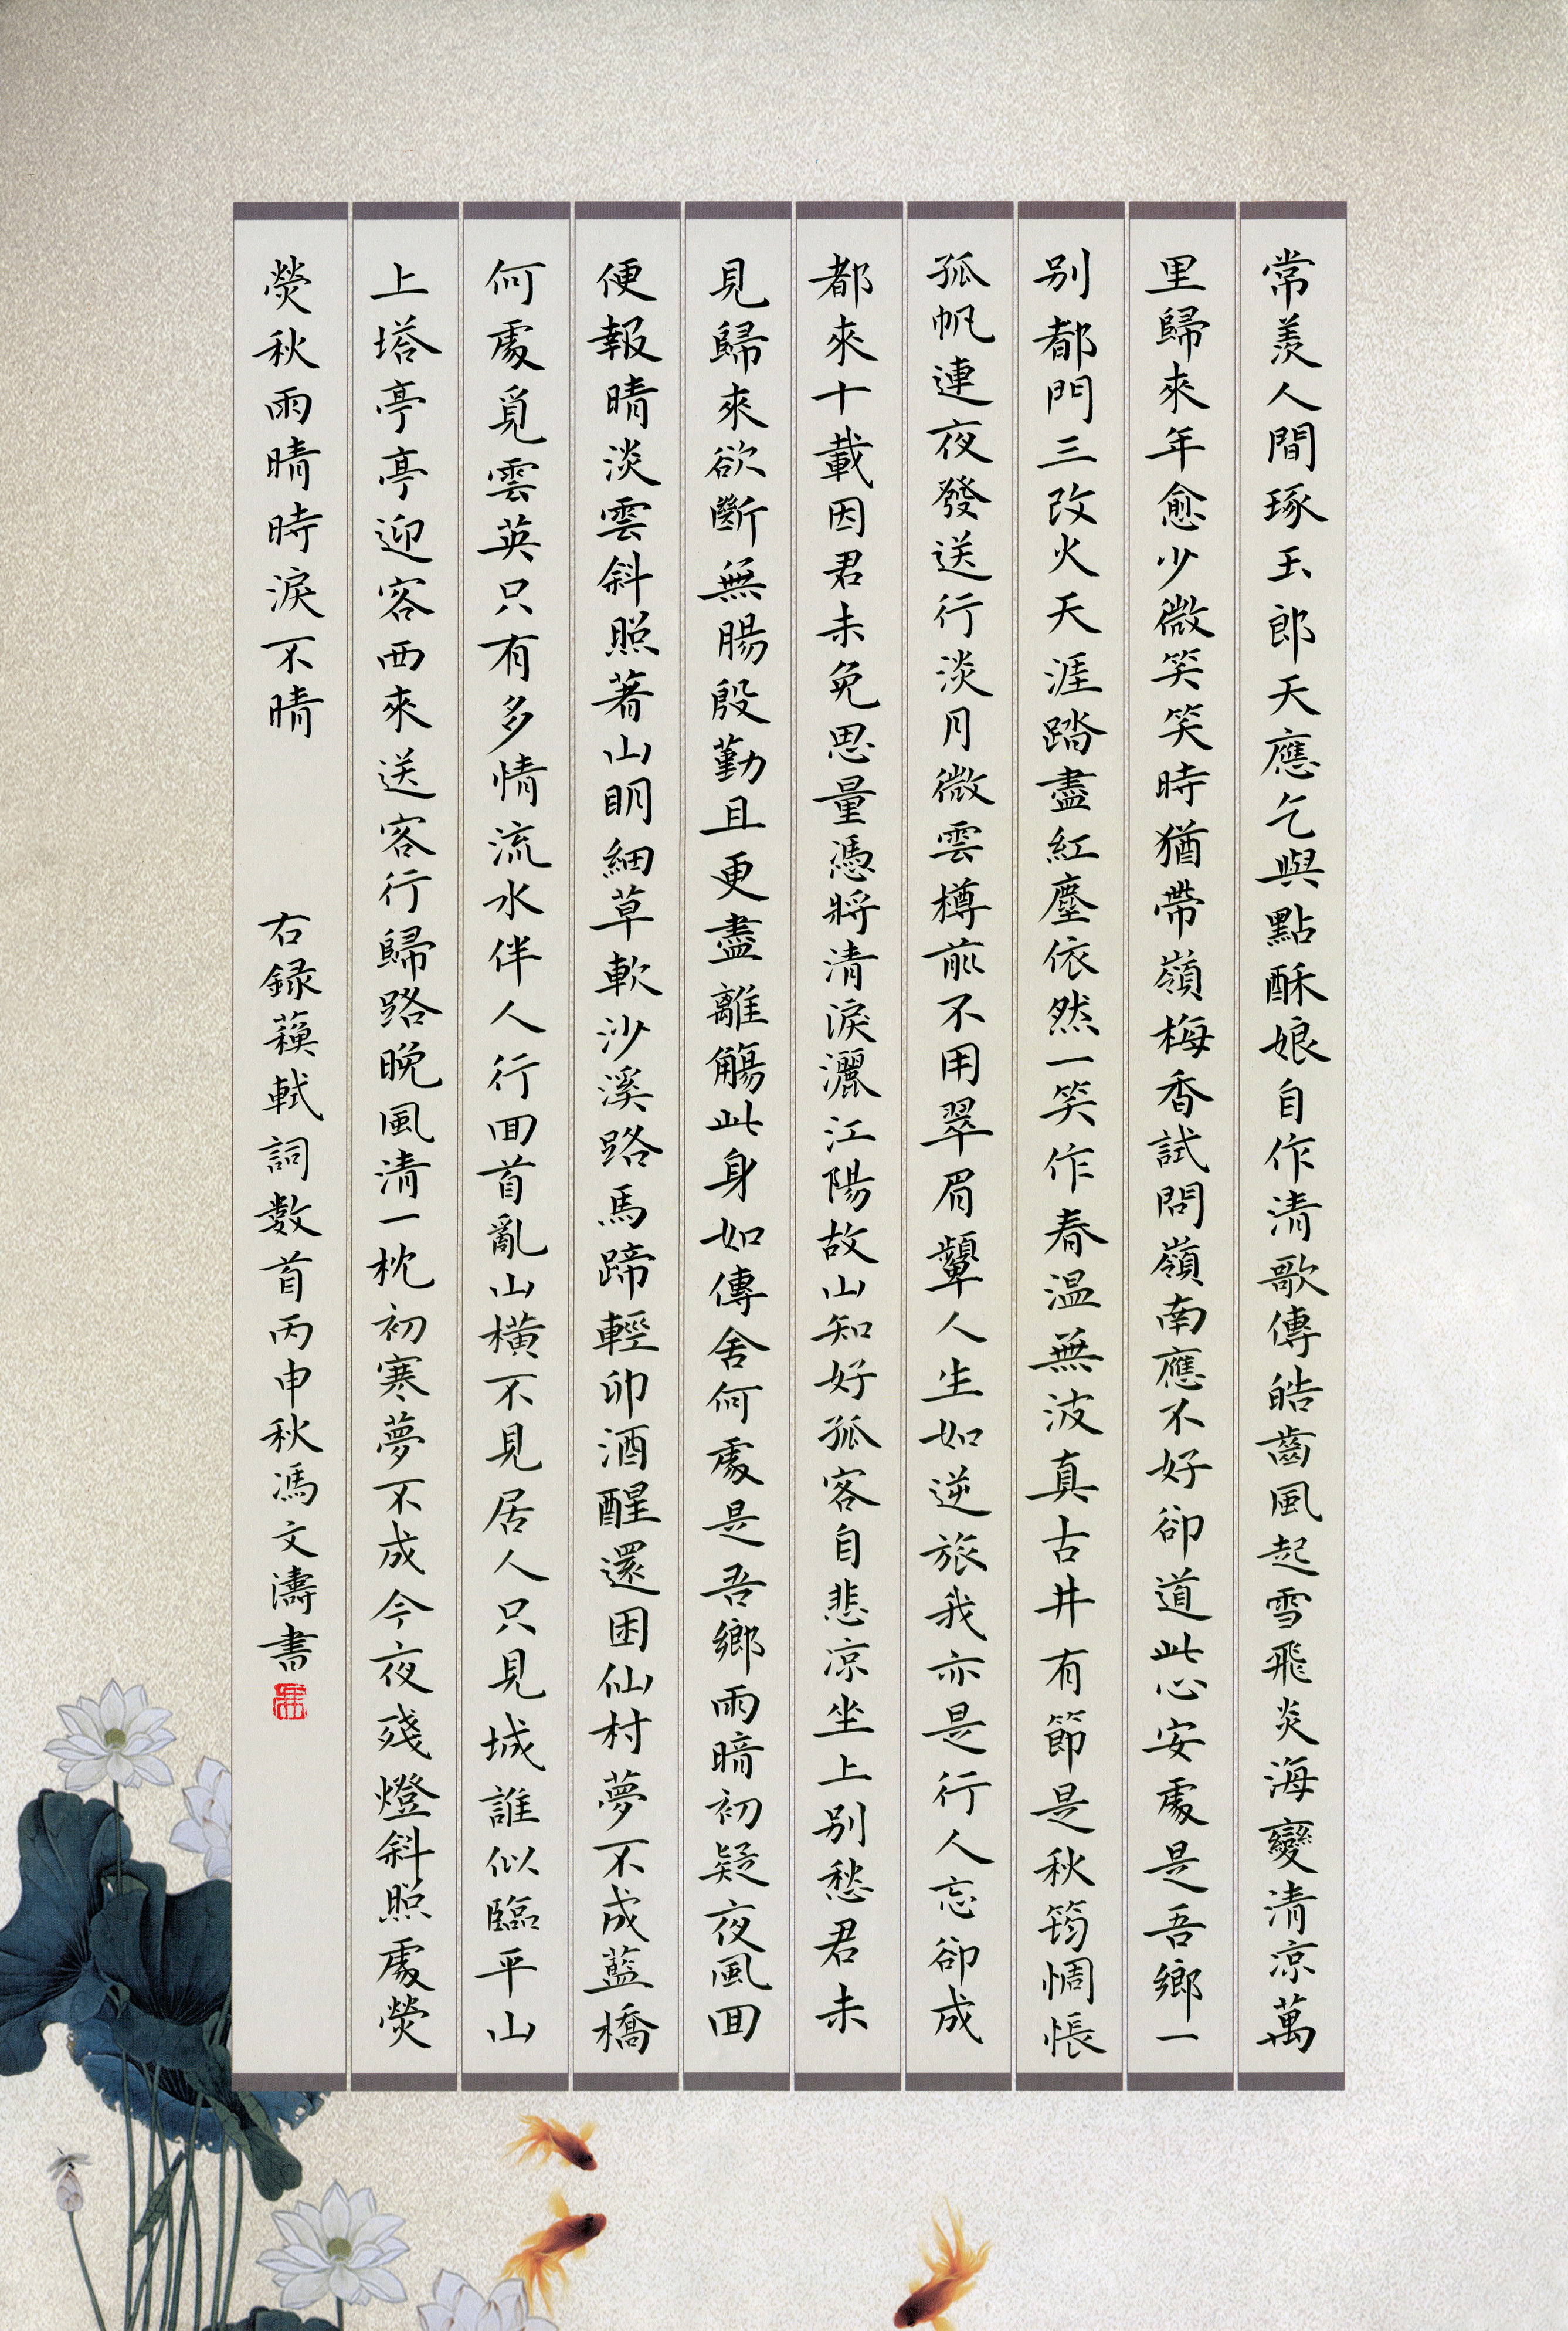 常羨人間琢玉郎天應乞與點酥娘自作清歌傳皓齒風起雪飛炎海變清涼萬
里歸來年愈少微笑笑時猶帶嶺梅香試問嶺南應不好卻道此心安處是吾鄉一
别都門三改火天涯踏盡紅塵依然一笑作春温無波真古井有節是秋筠惆悵
孤帆連夜發送行淡月微雲樽前不用翠眉顰人生如逆旅我亦是行人忘卻成
都來十載因君未免思量憑將清淚灑江陽故山知好孤客自悲涼坐上别愁君未
見歸來欲斷無腸殷勤且更盡離觴此身如傳舍何處是吾鄉雨暗初疑夜風回
便報晴淡雲斜照著山明細草軟沙溪路馬蹄輕卯酒醒還困仙村夢不成藍橋
何處覓雲英只有多情流水伴人行回首亂山橫不見居人只見城誰似臨平山
上塔亭亭迎客西來送客行歸路晚風清一枕初寒夢不成今夜殘燈斜照處熒
熒秋雨晴時淚不晴
右録蘓軾詞数首丙申秋馮文濤書